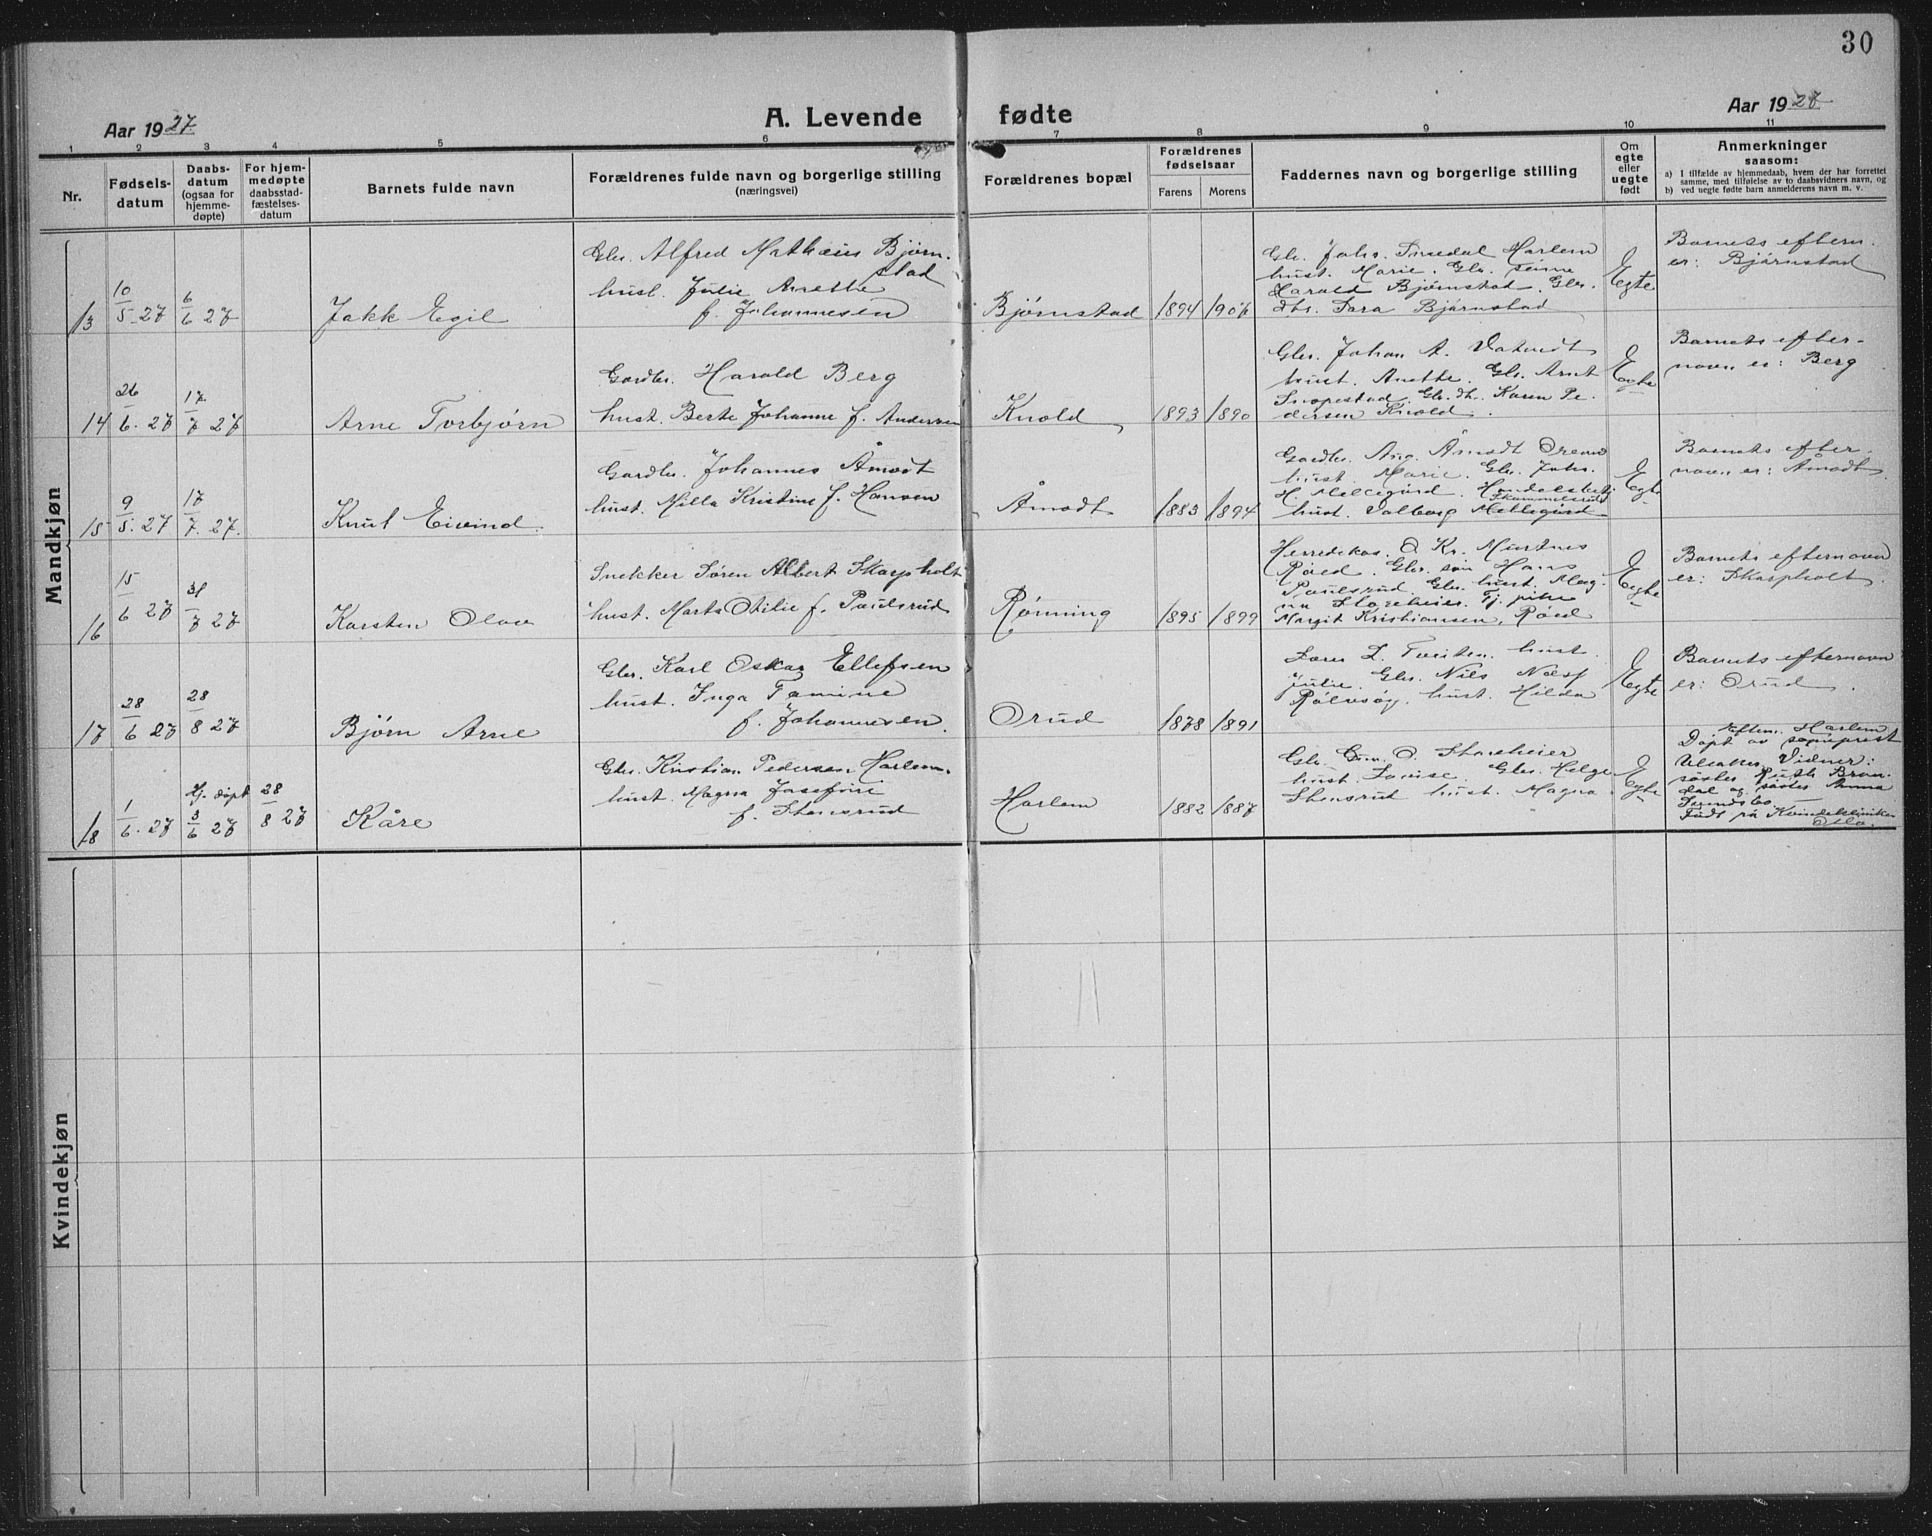 30
Aar 1927.
A. Levende fødte
Aar 1927
1 2 3 4 5 6 7 8 9 10 11
Nr.
Fødsels-
datum
Daabs-
datum
(ogsaa for
hjemme-
døpte)
For hjem-
medøpte
daabsstad-
fæstelses-
datum
Barnets fulde navn
Forældrenes fulde navn og borgerlige stilling
(næringsvei)
Forældrenes bopæl
Forældrenes
fødselsaar
Farens Morens
Faddernes navn og borgerlige stilling
Om
egte
eller
uegte
født
Anmerkninger
saasom:
a) I tilfælde av hjemmedaab, hvem der har forrettet
samme, med tilføielse av to daabsvidners navn, og
b) ved uegte fødte barn anmelderens navn m. v.
Mandkjøn
13
10/5 27
6/6 27
Jakk Egil
Gbr. Alfred Mathæus Bjørn-
stad
hust. Julie Anette
f. Johannesen
Bjørnstad
1894
Gbr. Johs. Harlem
hust. Marie. Gbr. sønne
Harald Bjørnstad. Gbr.
dtr. Sara Bjørnstad
Egte
Barnets eftern.
er: Bjørnstad
14
26/6. 27
17/7 27
Arne Torbjørn
Gardbr. Harald Berg
hust. Berte Johanne f. Andersen
Knold
1893 1890
Gbr. Johan A.
hust. Anette. Gbr. Arnt
Snopestad. Gbr. dtr. Karen Pe-
dersen Knold.
Egte
Barnets efter-
navn er: Berg
15
9/5. 27
17/7. 27.
Knut Eivind.
Gardbr. Johannes Åmodt
hust. Milla Kristine f. Hansen
Åmodt
1883 1894
Gardbr. Aug. Åmodt
hust. Marie. Gbr. Johs.
H. Mellegård.
hust. Valborg Mellegård
Egte
Barnets efter-
navn er: Åmodt
16
15/6 27
31/7 27
Karsten Olav
Snekker Søren Albert Skarpholt
hust. Marta Otilie f. Paulsrud
Rønning
1895 1899
Herredskas. O. Kr.
Røed. Gbr. søn Hans
Paulsrud. Gbr. hust. Mag-
na Storeheier. Tj. pike
Margit Kristiansen, Røed
Egte
Barnets efternavn
er: Skarpholt
17
28/6 27
28/8 27
Bjørn Arne
Gbr. Karl Oskar Ellefsen
hust. Inga Tamine
f. Johannesen.
Orud
1878 1891
L. hust.
Julie. Gbr. Nils Næss
hust. Hilda
Egte
Barnets efternavn
er: Orud.
18
1/6. 27
Hj. døpt
3/6 27
28/8 27
Kåre
Gbr. Kristian Pedersen Harlem.
hust. Magna Josefine
f. Stensrud
Harlem
1882 1887
Gbr. O. Storeheier
hust. Louise. Gbr. Helge
Stensrud hust. Magna.
Egte
Eftern. Harlem
Døpt av sogneprest
Vidner:
søster Ruth Bron-
dal og søster Anna

Født på Kvindeklinikken
Oslo.
Kvindekjøn